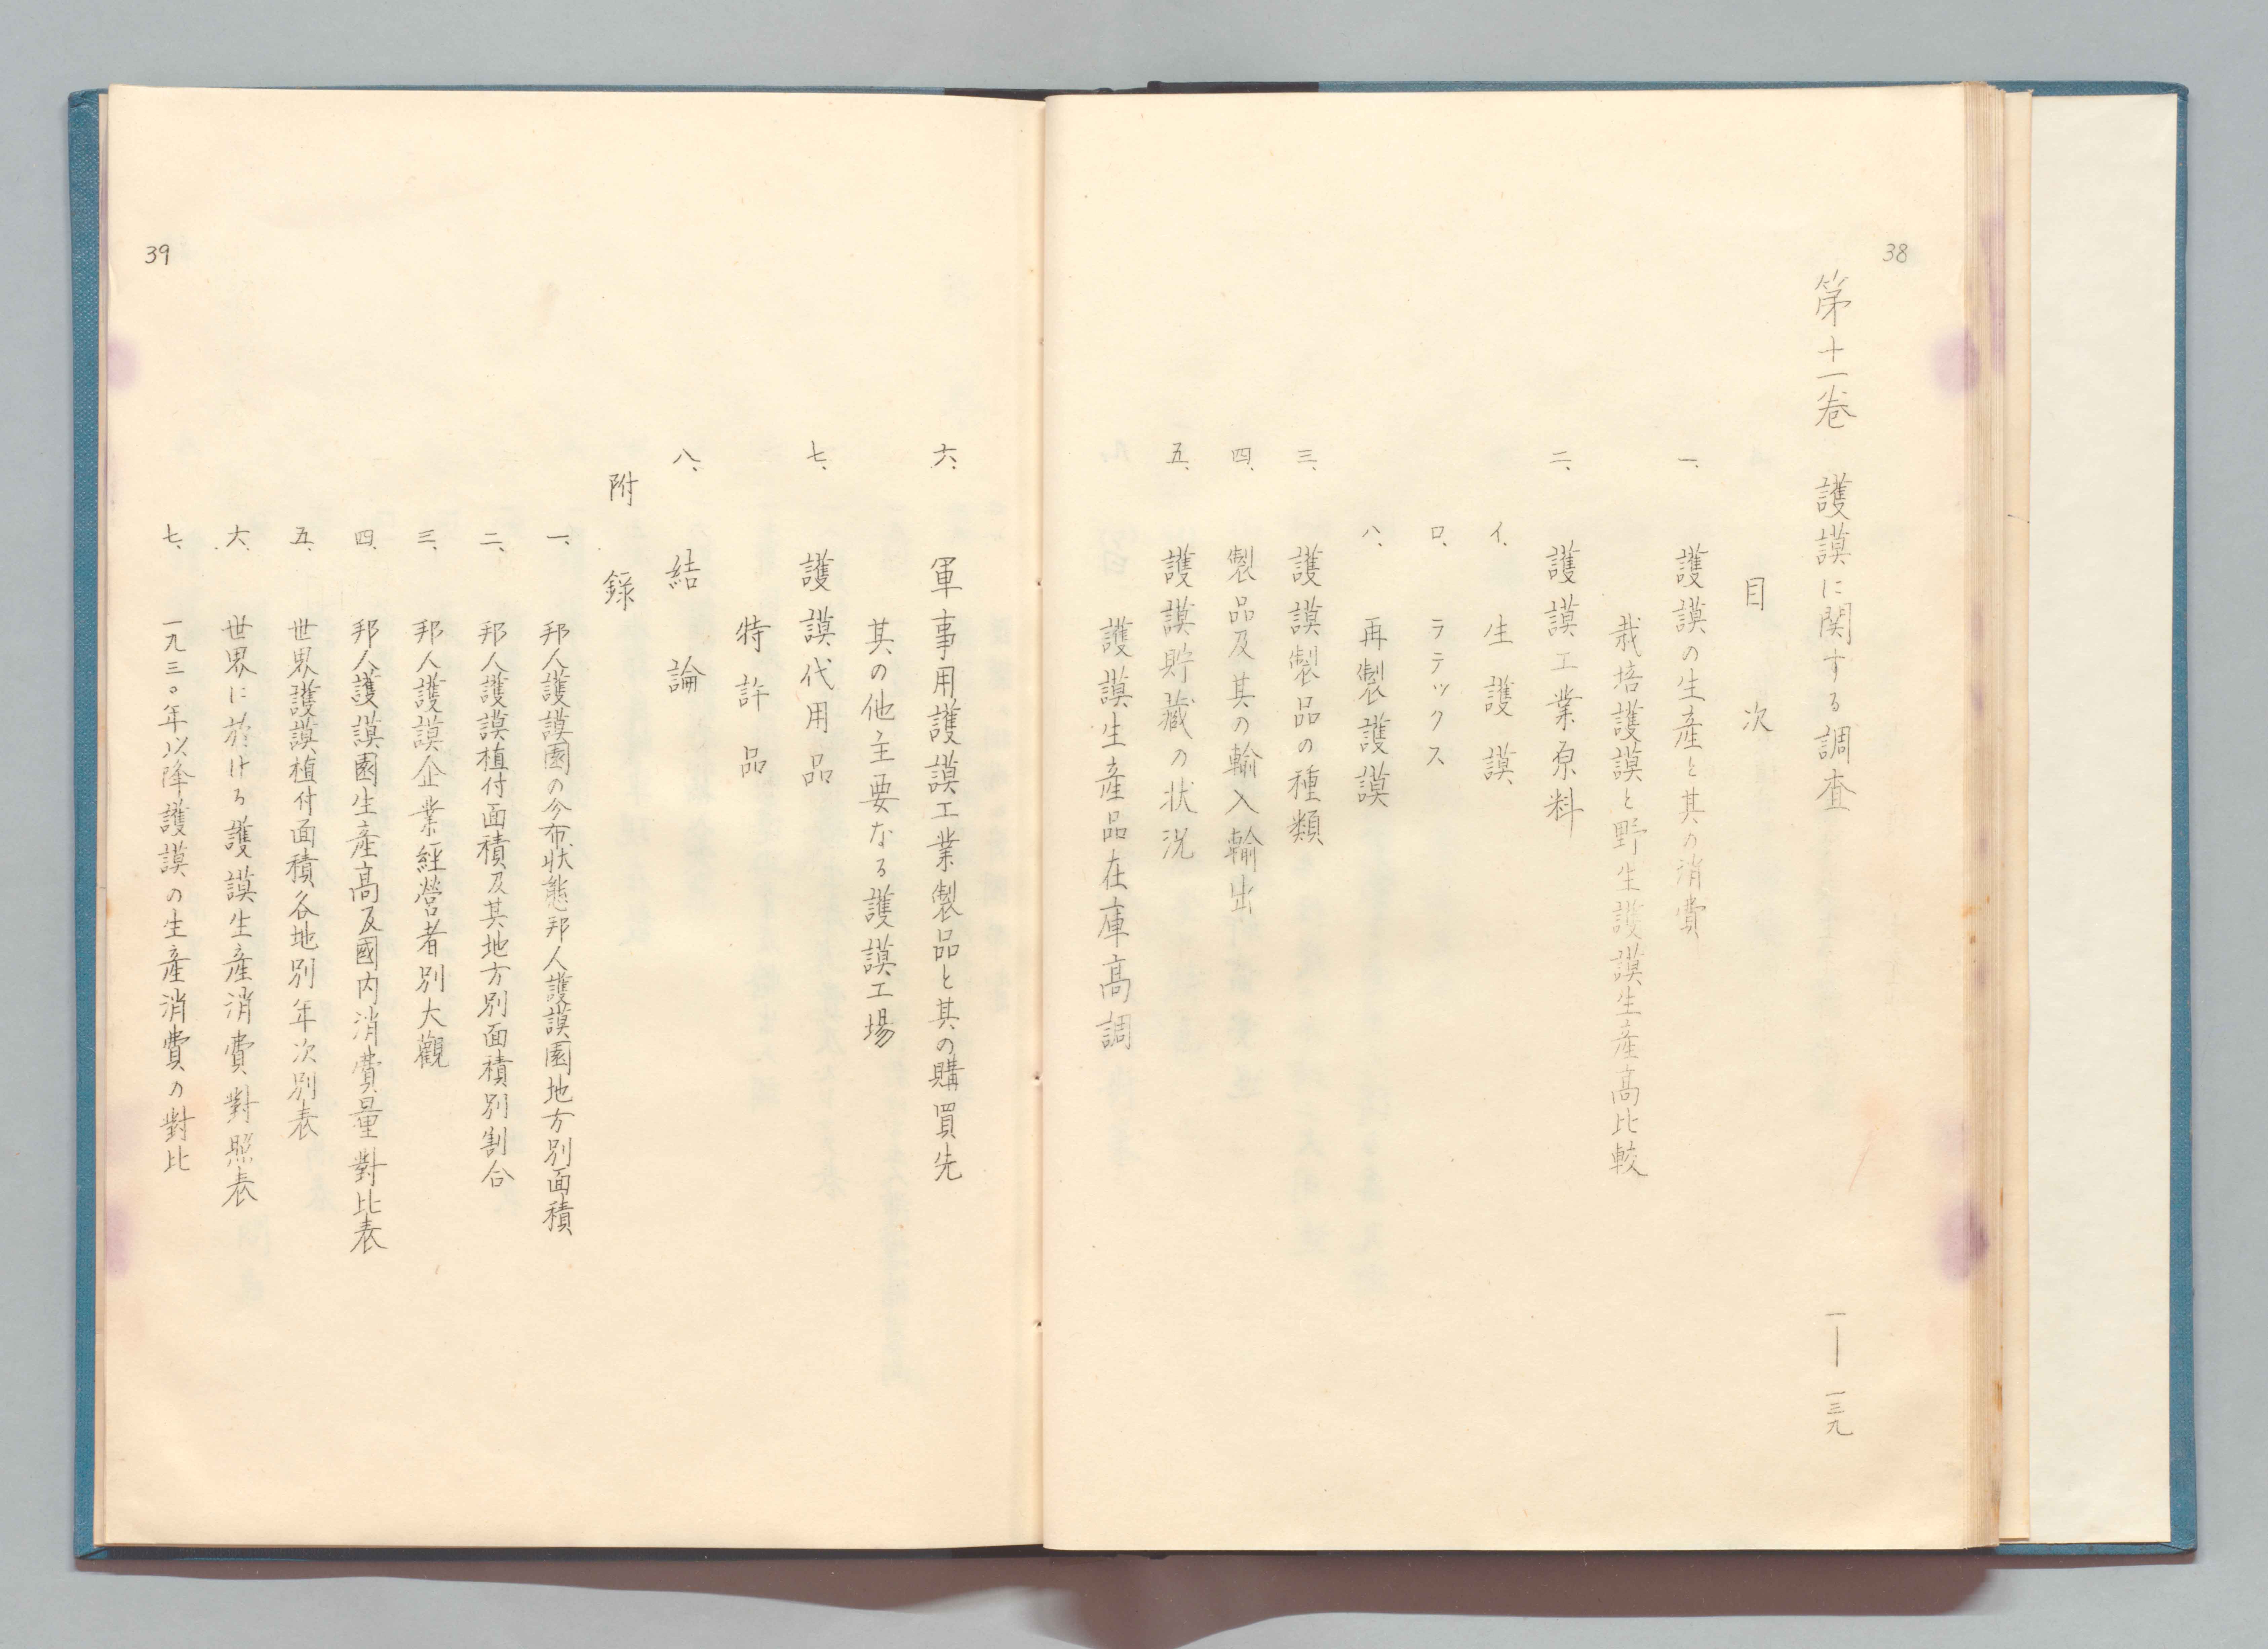 38
第十一卷　護謨に関する調査　一―一三九
目次
一、護謨の生産と其の消費
栽培護謨と野生護謨生産高比較
二、護謨工業原料
イ、生護謨
ロ、ラテックス
ハ、再製護謨
三、護謨製品の種類
四、製品及其の輸入輸出
五、護謨貯蔵の状況
護謨生産品在庫高調
六、軍事用護謨工業製品と其の購買先
其の他主要なる護謨工場
七、護謨代用品
特許品
八、結論
附録
一、邦人護謨園の分布状態邦人護謨園地方別面積
二、邦人護謨植付面積及其地方別面積別割合
三、邦人護謨企業経営者別大觀
四、邦人護謨園生産高及國内消費量對比表
五、世界護謨植付面積各地別年次別表
六、世界に於ける護謨生産消費對照表
七、一九三〇年以降護謨の生産消費の對比
39